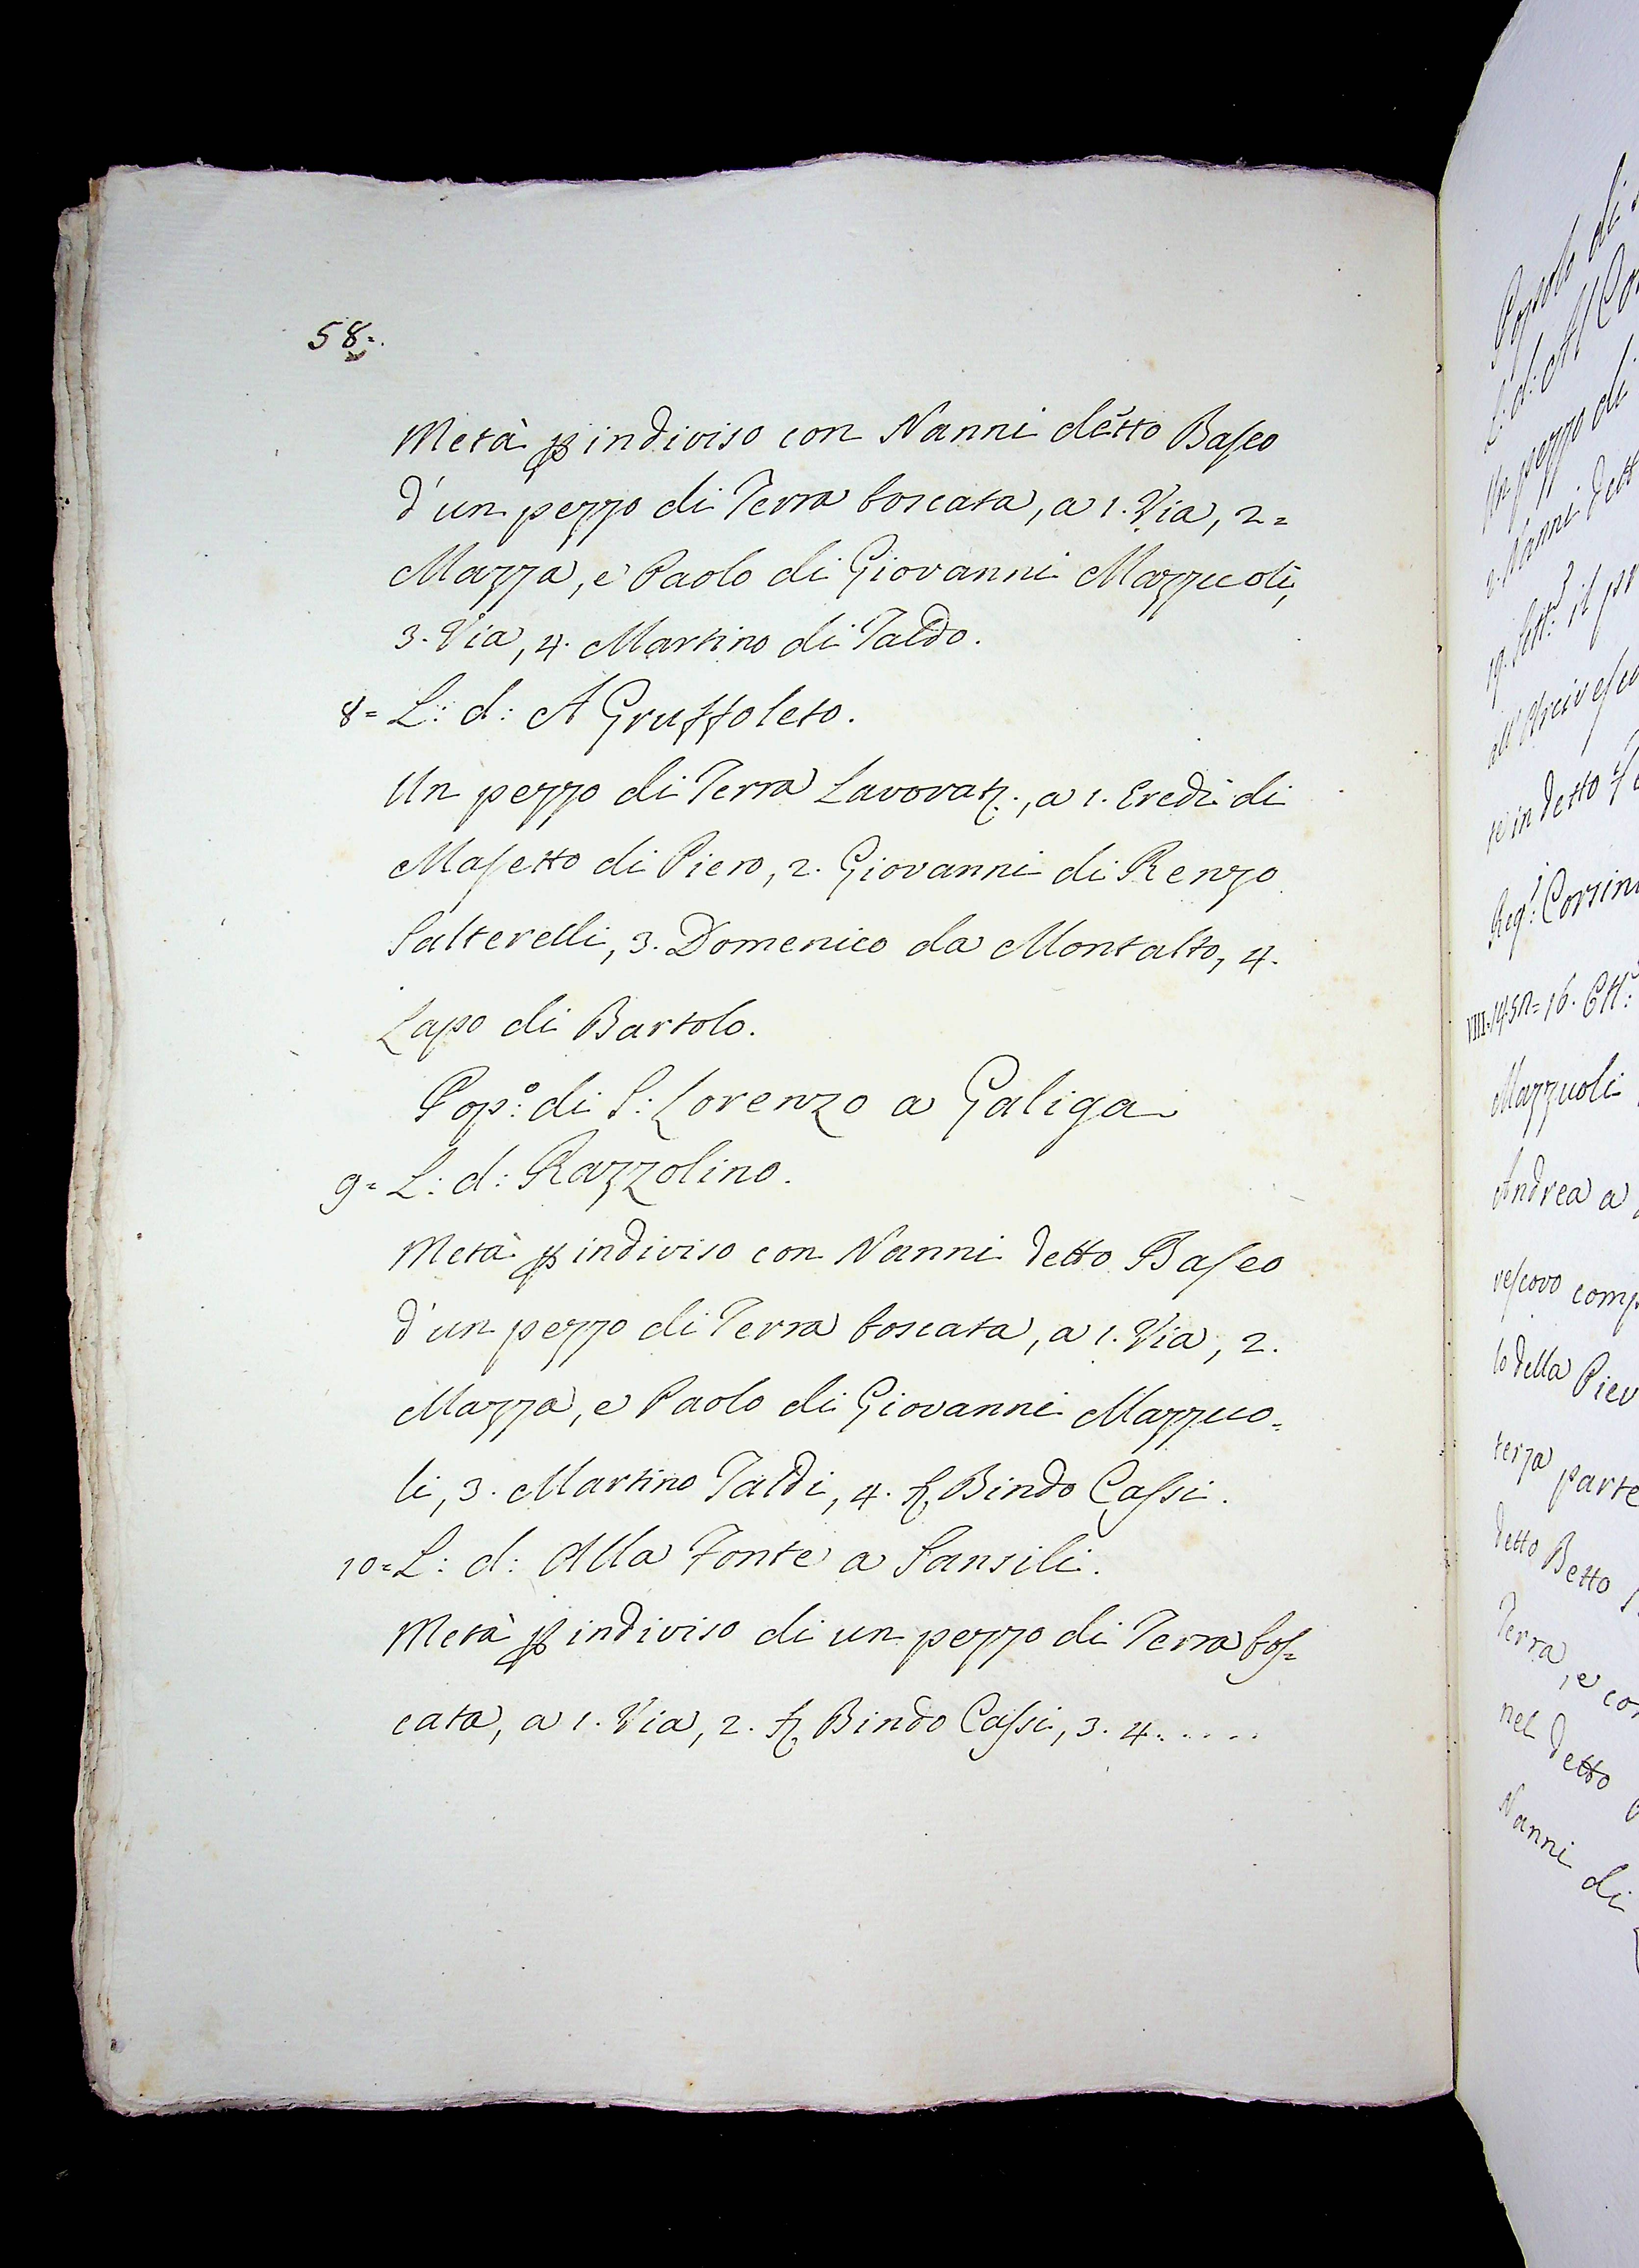 58=.
Metà p indiviso con Nanni detto Baſeo
d'un pezzo di Terra boscata, a 1. Via, 2=
Mazza, e Paolo di Giovanni Mazzuoli,
3. Via, 4. Martino di Taldo.
8= L: d: A Gruffoleto.
Un pezzo di Terra Lavorat., a 1. Eredi di
Maſetto di Piero, 2. Giovanni di Renzo
Salterelli, 3. Domenico da Montalto, 4.
Lapo di Bartolo.
Pop:º di S: Lorenzo a Galiga
9= L: d: Razzolino.
Metà p indiviso con Nanni detto Baſeo
d'un pezzo di Terra boscata, a 1. Via, 2.
Mazza, e Paolo di Giovanni Mazzuo=
li, 3. Martino Taldi, 4. Bindo Caſsi.
10= L: d: Alla Fonte a Sansili.
Metà p indiviso di un pezzo di Terra boſ=
cata, a 1. Via, 2. Bindo Caſsi, 3. 4.....
Popolo di
L: d: Al
Un pezzo di
2. Nanni dett
19. Sett:e il
all' Arciveſco
te in detto
Reg: Corsin
VIII. 16. Ott:
Mazzuoli
Andrea a
veſcovo comp
lo della Piev
terza parte
detto Betto
Terra, e co
nel detto
Nanni di